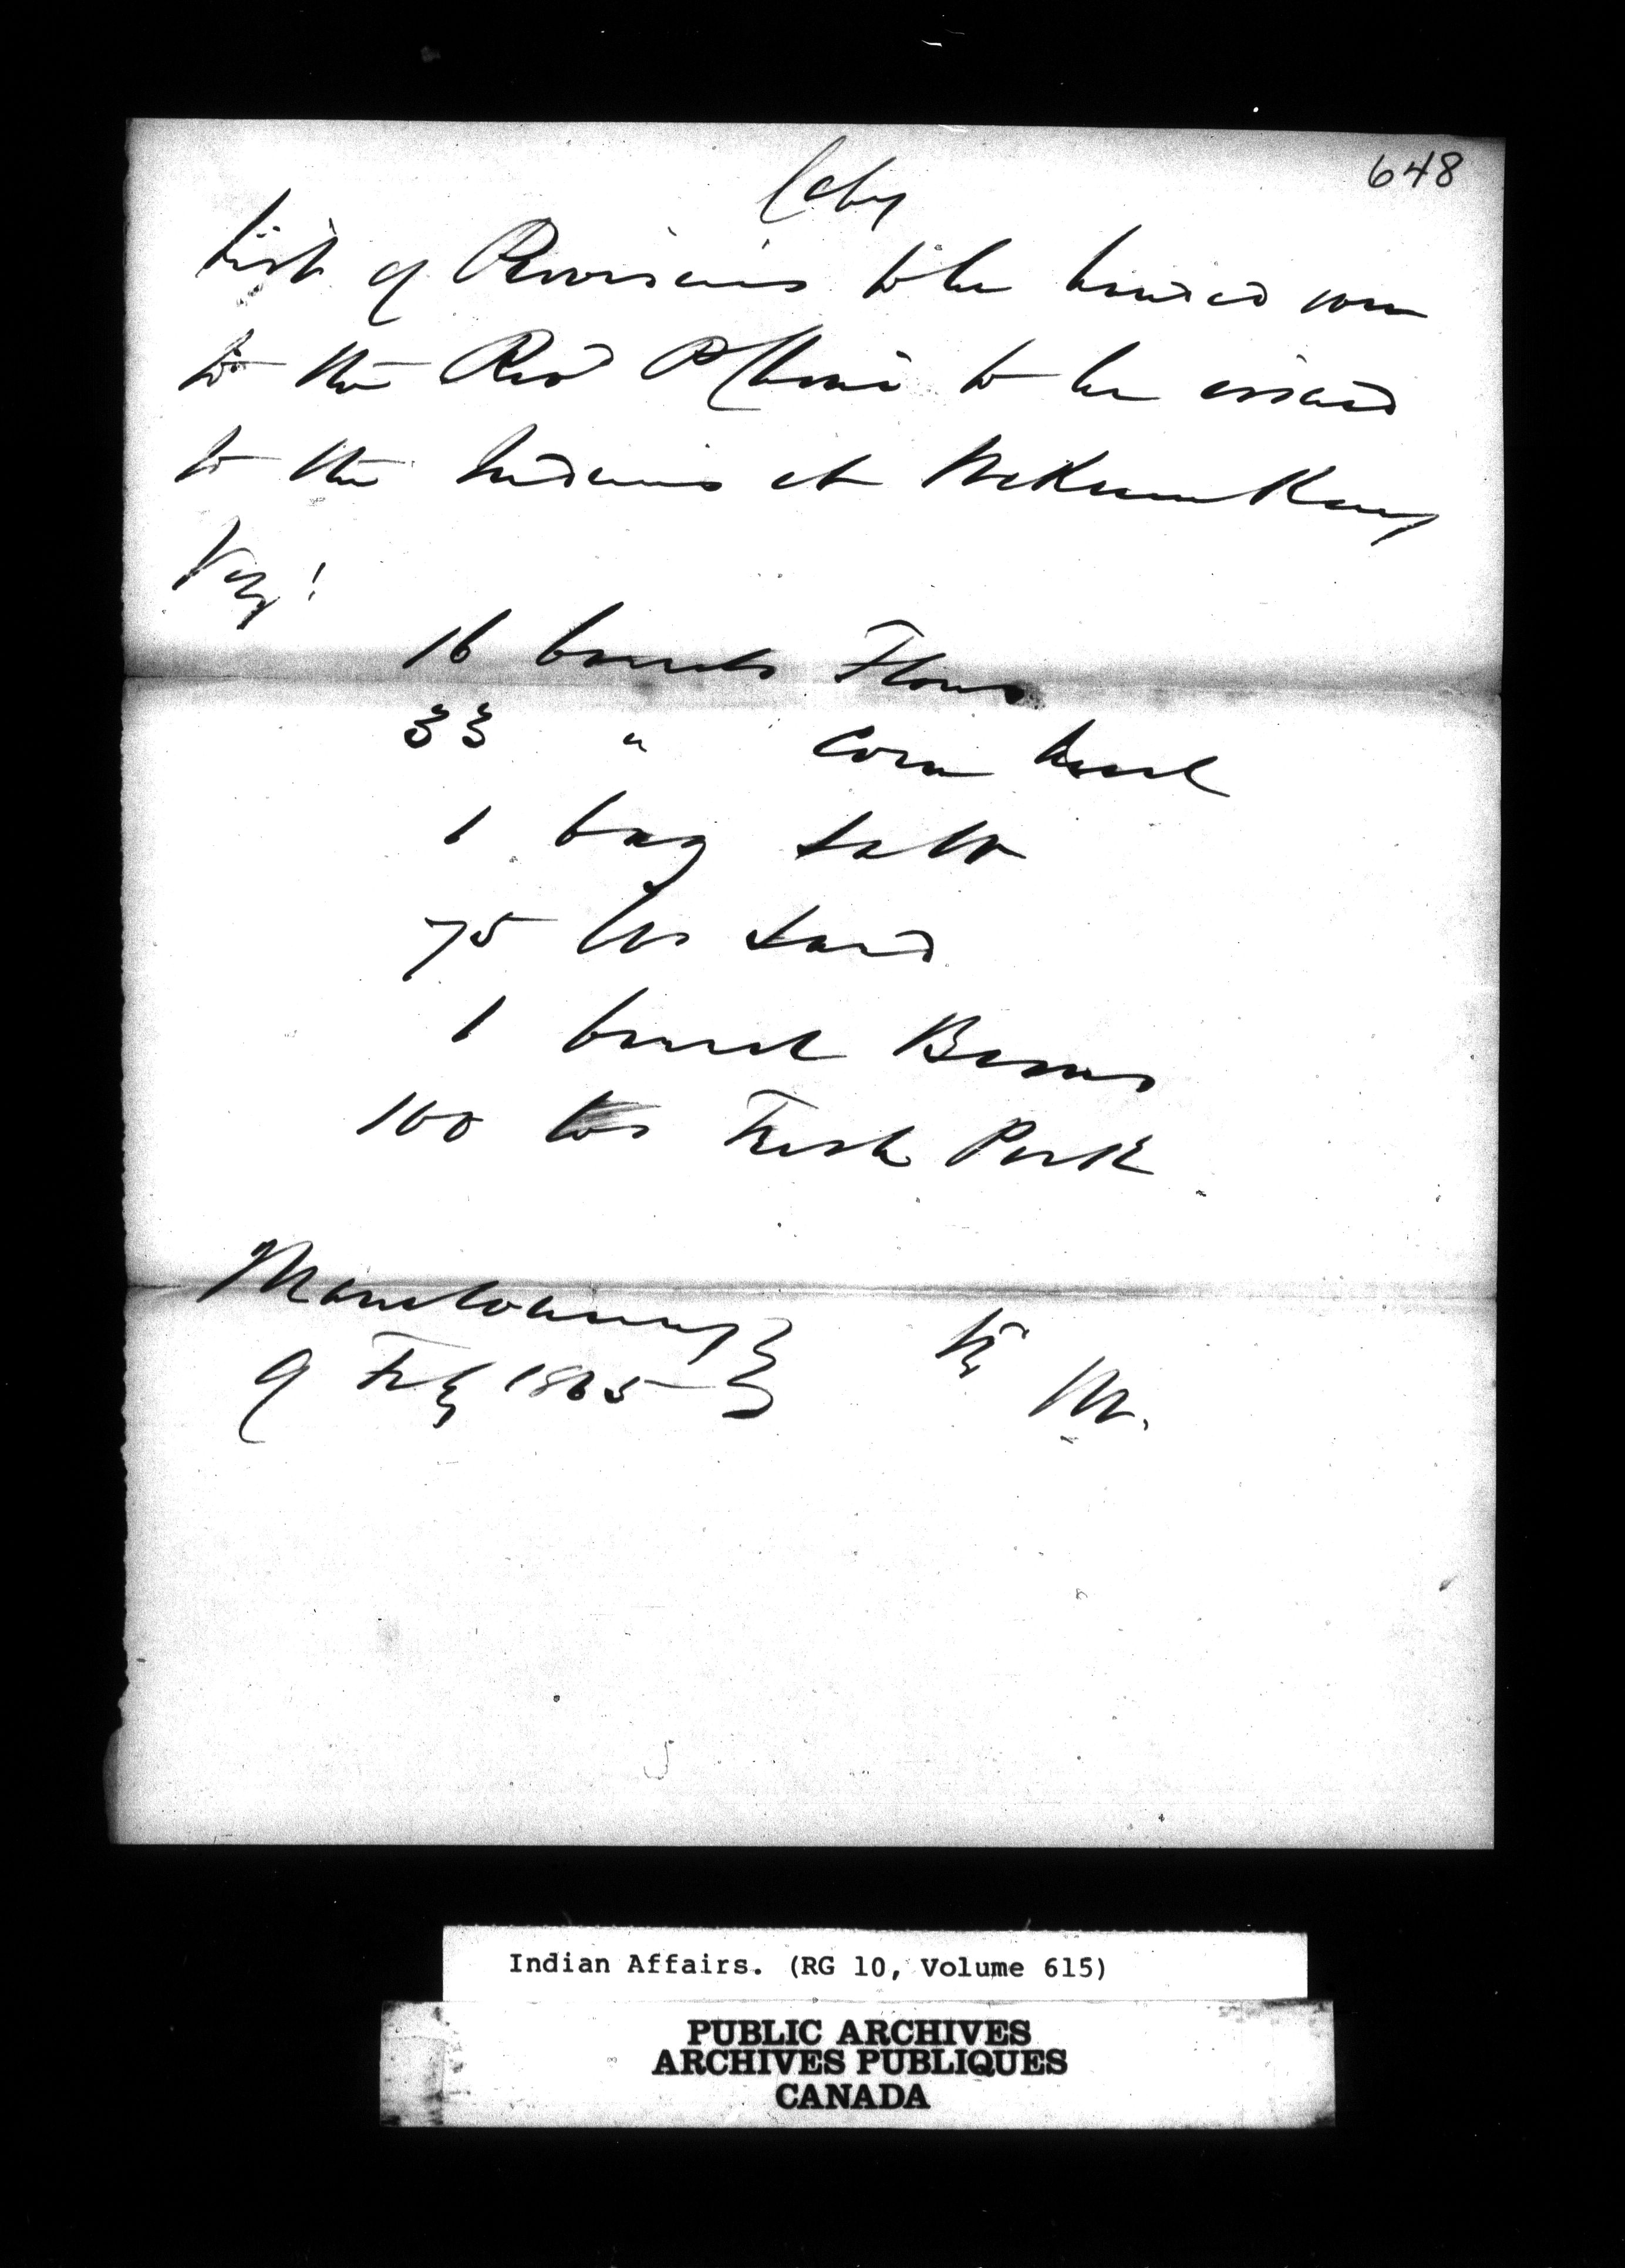 648
Copy
List of Provisions to be handed over
to the Revd P Choné to be issued
to the Indians at WeKwemKong
Vizt
16 barrels Flour
33 " Corn meal
1 bag Salt
75 lbs Lard
1 barrel Beans
100 lbs Fresh Pork
Manitowaning }
9 Feby 1865 }
Indian Affairs. (RG 10, Volume 615)
PUBLIC ARCHIVES
ARCHIVES PUBLIQUES
CANADA